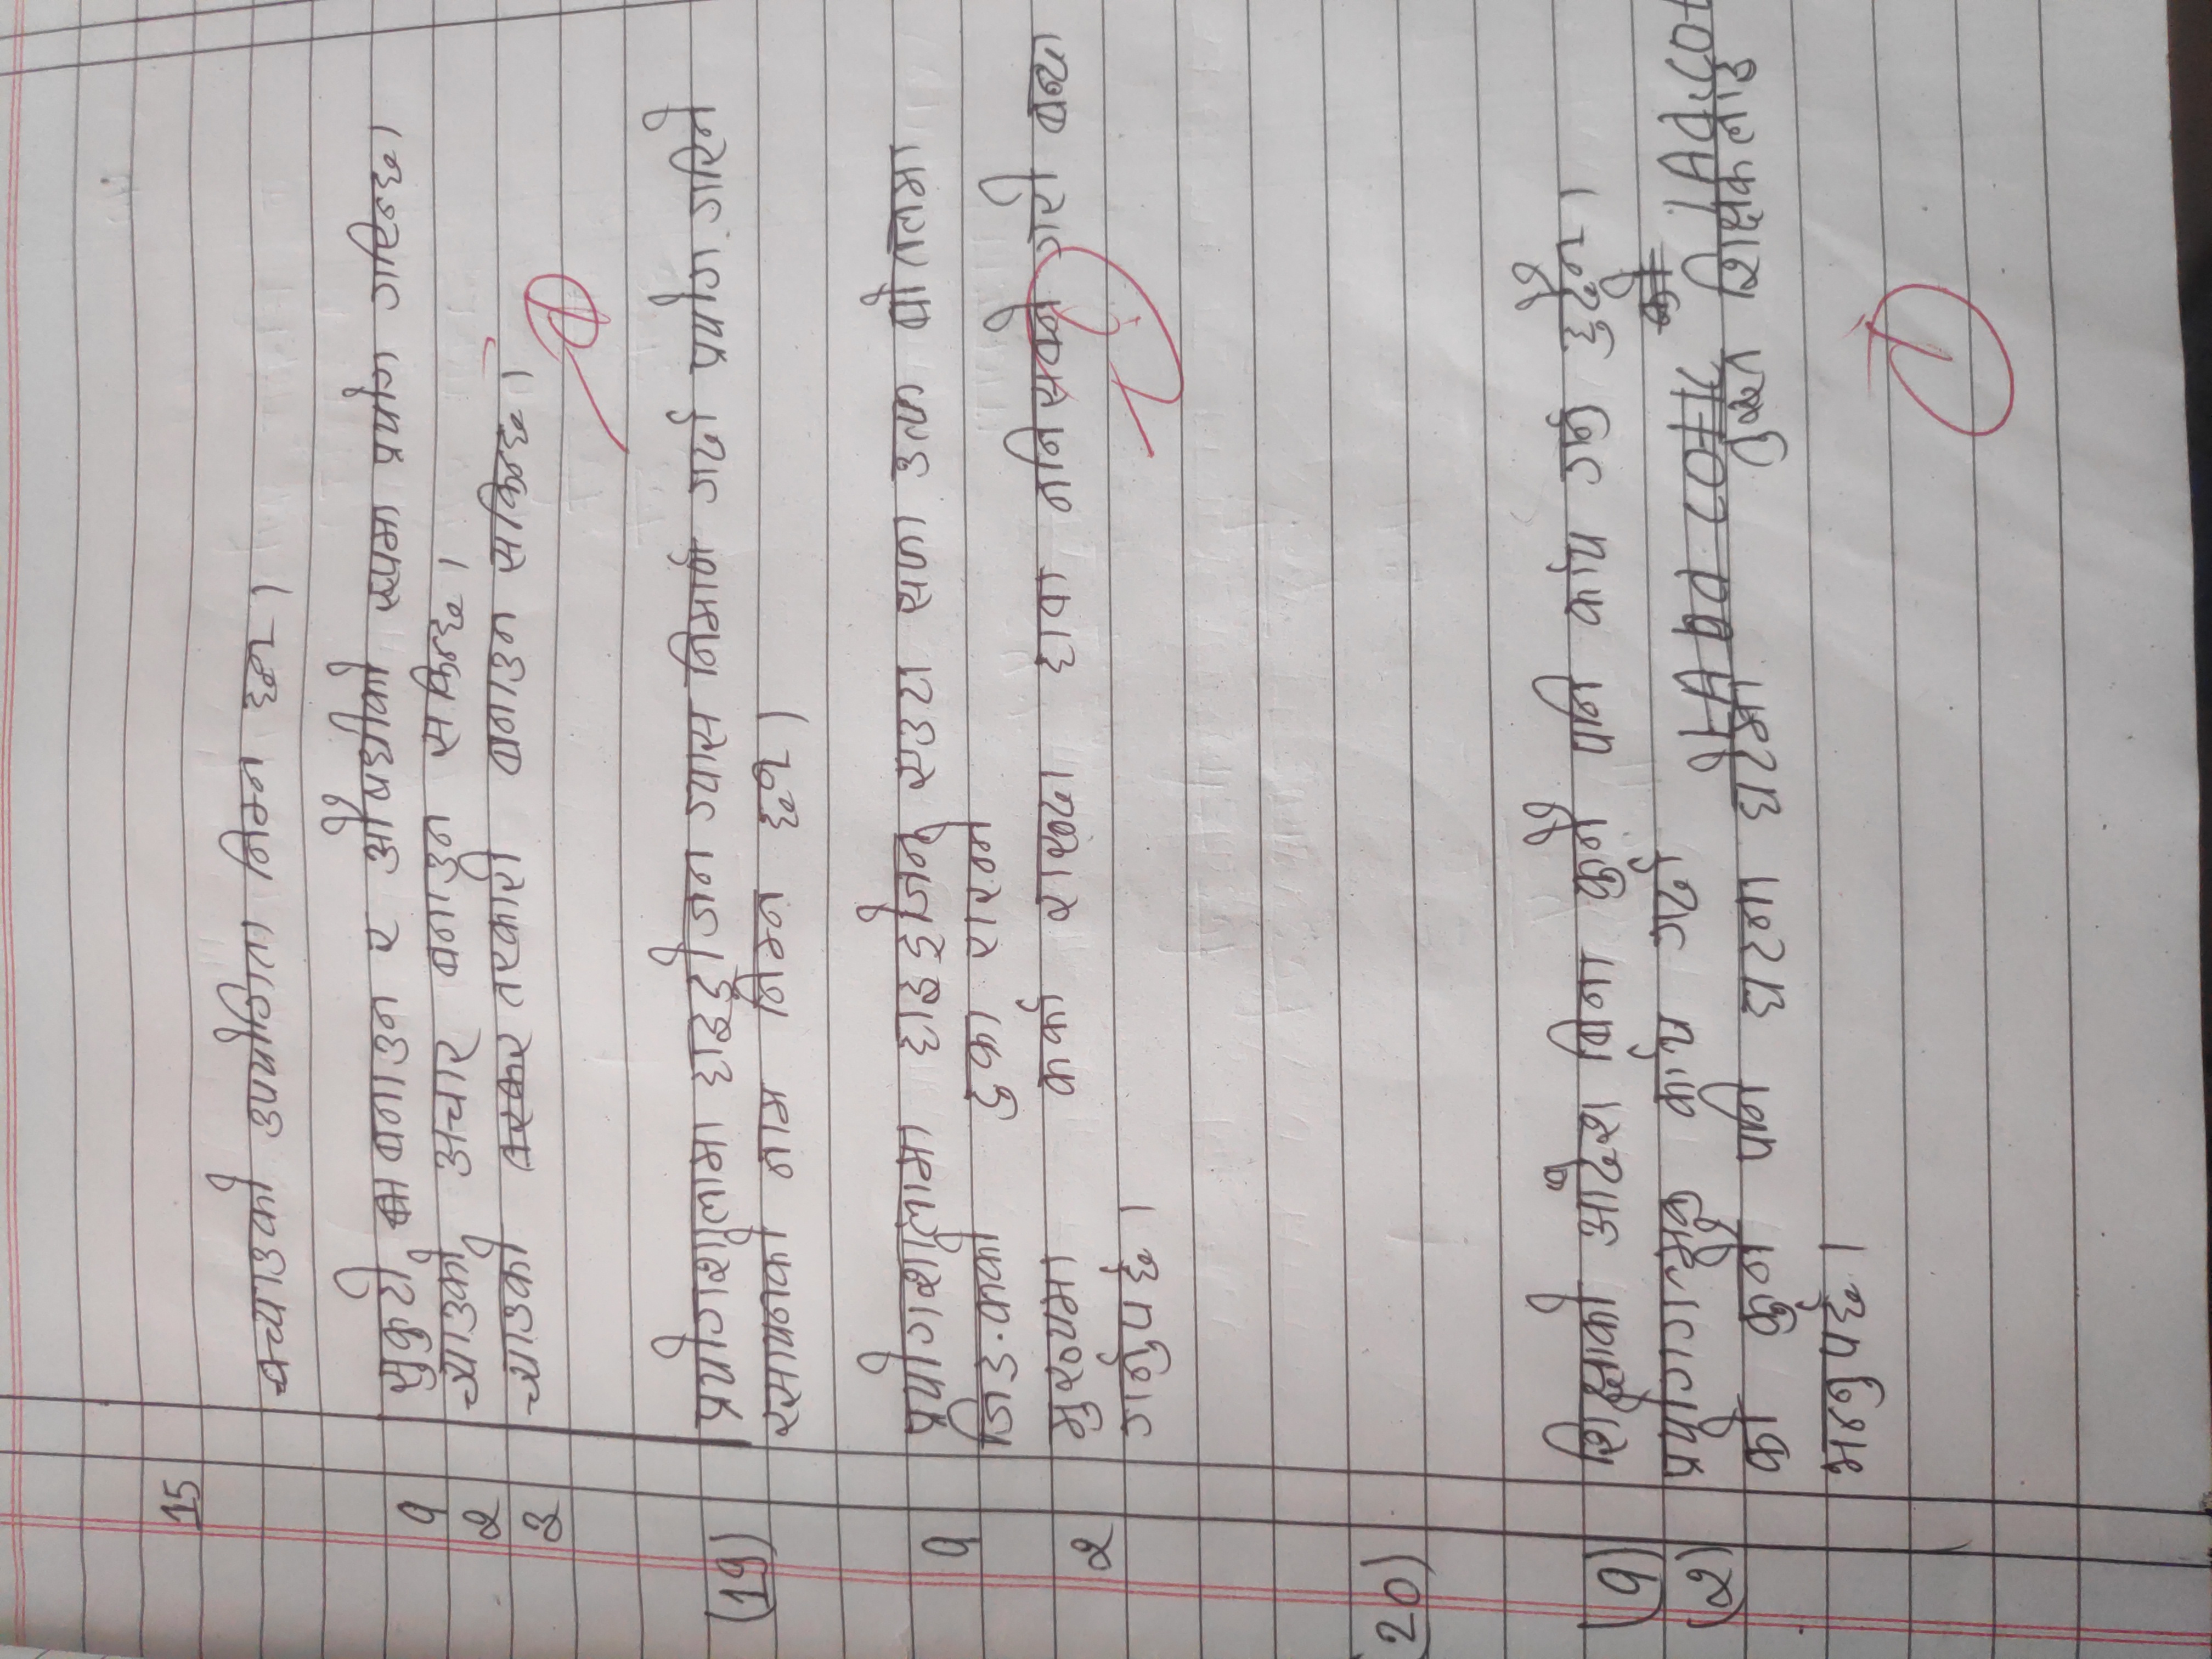 15
च्याउको उपयोगिता निम्न छन् ।
१ सुकुटी बनाउन र औषधीको रूपमा प्रयोग गरिन्छ।
२ च्याउको अचार बनाउन सकिन्छ।
३ च्याउको तरकारी बनाउन सकिन्छ।
(19) प्रयोगशालामा हाइड्रोजन ग्यास निमार्ण गर्दा प्रयोग गरिने
रसायनको नाम निम्न छन् ।
१ प्रयोगशालामा हाइड्रोजन एउटा सफा उल्फ बोतलमा
जिङ.कको टुक्रा राख्ने
२ मुख्यमा कर्का राख्दा हावा ननिस्क्ने गरी बन्दा
गर्नुपर्छ।
20)
(१) शिक्षाको आदेश बिना कुनै पनि कार्य गर्नु हुदैन।
(२) प्रयोगगात्मक कार्य गर्दा
को कुनै पनि घटना घटेमा तुरून्त शिक्षकलाई
भन्नुपर्छ।